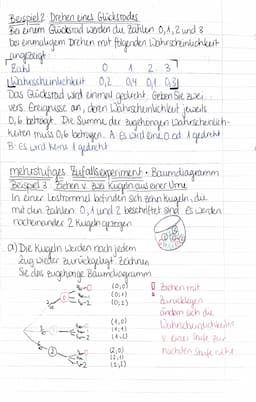 Beispiel 2 Drehen eines Glücksrades
Bei einem Glücksrad werden die Zahlen 0, 1, 2 und 3
bei einmaligem Drehen mit folgenden Wahrscheinlichkeit
angezeigt:
Zahl 0 1 2 3
Wahrscheinlichkeit 0,2 0,4 0,1 0,3
Das Glücksrad wird einmal gedreht. Geben Sie zwei
vers. Ereignisse an, deren Wahrscheinlichkeit jeweils
0,6 beträgt. Die Summe der zugehörigen Wahrscheinlich-
keiten muss 0,6 betragen. A: Es wird eine 0 od. 1 gedreht
B: Es wird keine 1 gedreht
mehrstufiges Zufallsexperiment - Baumdiagramm
Beispiel 3 Ziehen v. zwei Kugeln aus einer Urne
In einer Lostrommel befinden sich zehn Kugeln, die
mit den Zahlen 0, 1 und 2 beschriftet sind. Es werden
nacheinander 2 Kugeln gezogen
a) Die Kugeln werden nach jedem
Zug wieder zurückgelegt. Zeichnen
Sie das zugehörige Baumdiagramm
0 (0,0)
1 (0,1)
2 (0,2)
(1,0)
1 (1,1)
2 (1,2)
(2,0)
(2,1)
2 (2,2)
Ziehen mit
Zurücklegen
ändern sich die
Wahrscheinlichkeiten
v. einer Stufe zur
nächsten Stufe nicht